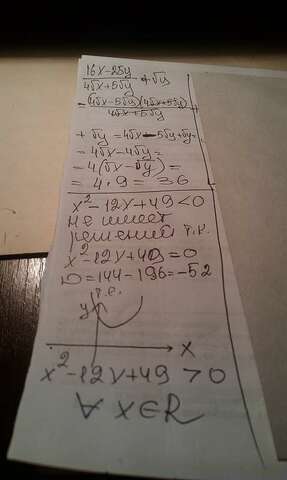 (16x-25y)/(4√x+5√y) + √y
= (4√x-5√y)(4√x+5√y)/(4√x+5√y)
+ √y = 4√x-5√y+√y=
= 4√x-4√y=
= 4(√x-√y)=
= 4·9 = 36
x²-12x+49<0
не имеет
решений т.к.
x²-12x+49=0
D=144-196=-52
т.е.
y
x
x²-12x+49 >0
∀ x∈R